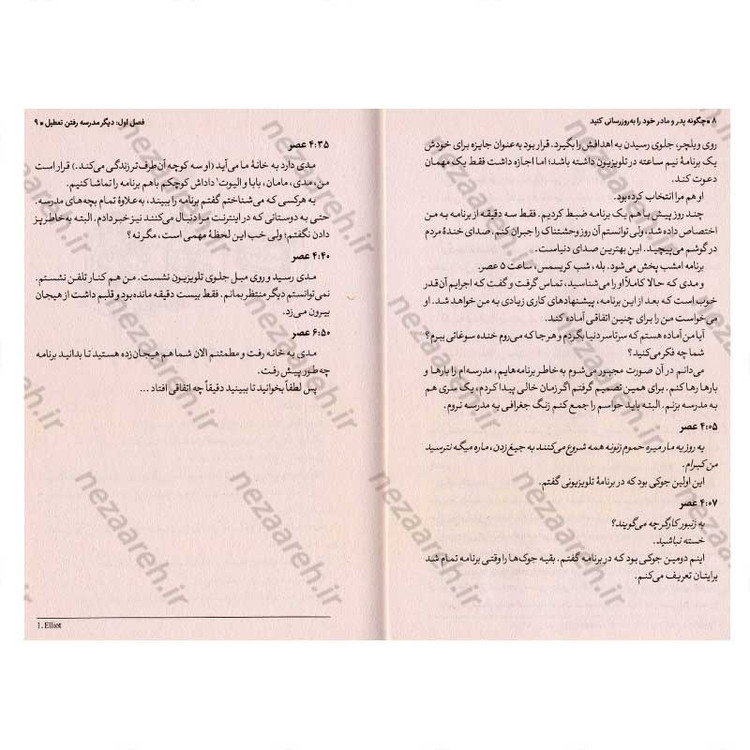 ۸ ● چگونه پدر و مادر خود را به‌روزرسانی کنید
روی ویلچر، جلوی رسیدن به اهدافش را بگیرد. قرار بود به‌عنوان جایزه برای خودش
یک برنامهٔ نیم ساعته در تلویزیون داشته باشد؛ اما اجازه داشت فقط یک مهمان
دعوت کند.
او هم مرا انتخاب کرده بود.
چند روز پیش با هم یک برنامه ضبط کردیم. فقط سه دقیقه از برنامه به من
اختصاص داده شد، ولی توانستم آن روز وحشتناک را جبران کنم. صدای خندهٔ مردم
در گوشم می‌پیچید. این بهترین صدای دنیاست.
برنامه امشب پخش می‌شود. بله، شب کریسمس، ساعت ۵ عصر.
و مدی که حالا کاملاً او را می‌شناسید، تماس گرفت و گفت که اجرایم آن‌قدر
خوب است که بعد از این برنامه، پیشنهادهای کاری زیادی به من خواهد شد. او
می‌خواست من را برای چنین اتفاقی آماده کند.
آیا من آماده هستم که سرتاسر دنیا بگردم و هرجا که می‌روم خنده سوغاتی ببرم؟
شما چه فکر می‌کنید؟
می‌دانم در آن صورت مجبور می‌شوم به‌خاطر برنامه‌هایم، مدرسه‌ام را بارها و
بارها رها کنم. برای همین تصمیم گرفتم اگر زمان خالی پیدا کردم، یک سری هم
به مدرسه بزنم. البته باید حواسم را جمع کنم زنگ جغرافی به مدرسه نروم.
۴:۰۵ عصر
یه روز یه مار میره حموم زنونه همه شروع می‌کنند به جیغ زدن، ماره میگه نترسید
من کبرام.
این اولین جوکی بود که در برنامهٔ تلویزیونی گفتم.
۴:۰۷ عصر
به زنبور کارگر چه می‌گویند؟
خسته نباشید.
اینم دومین جوکی بود که در برنامه گفتم. بقیه جوک‌ها را وقتی برنامه تمام شد
برایتان تعریف می‌کنم.
فصل اول: دیگر مدرسه رفتن تعطیل ● ۹
۴:۳۵ عصر
مدی دارد به خانهٔ ما می‌آید (او سه کوچه آن‌طرف‌تر زندگی می‌کند.) قرار است
من، مدی، مامان، بابا و الیوت¹ داداش کوچکم باهم برنامه را تماشا کنیم.
به هرکسی که می‌شناختم گفتم برنامه را ببیند، به‌علاوهٔ تمام بچه‌های مدرسه.
حتی به دوستانی که در اینترنت مرا دنبال می‌کنند نیز خبر دادم. البته به خاطر پز
دادن نگفتم؛ ولی خب این لحظهٔ مهمی است، مگر نه؟
۴:۴۰ عصر
مدی رسید و روی مبل جلوی تلویزیون نشست. من هم کنار تلفن نشستم.
نمی‌توانستم دیگر منتظر بمانم. فقط بیست دقیقه مانده بود و قلبم داشت از هیجان
بیرون می‌زد.
۶:۵۰ عصر
مدی به خانه رفت و مطمئنم الان شما هم هیجان‌زده هستید تا بدانید برنامه
چه‌طور پیش رفت.
پس لطفاً بخوانید تا ببینید دقیقاً چه اتفاقی افتاد ...
1. Elliot
nezaareh.ir